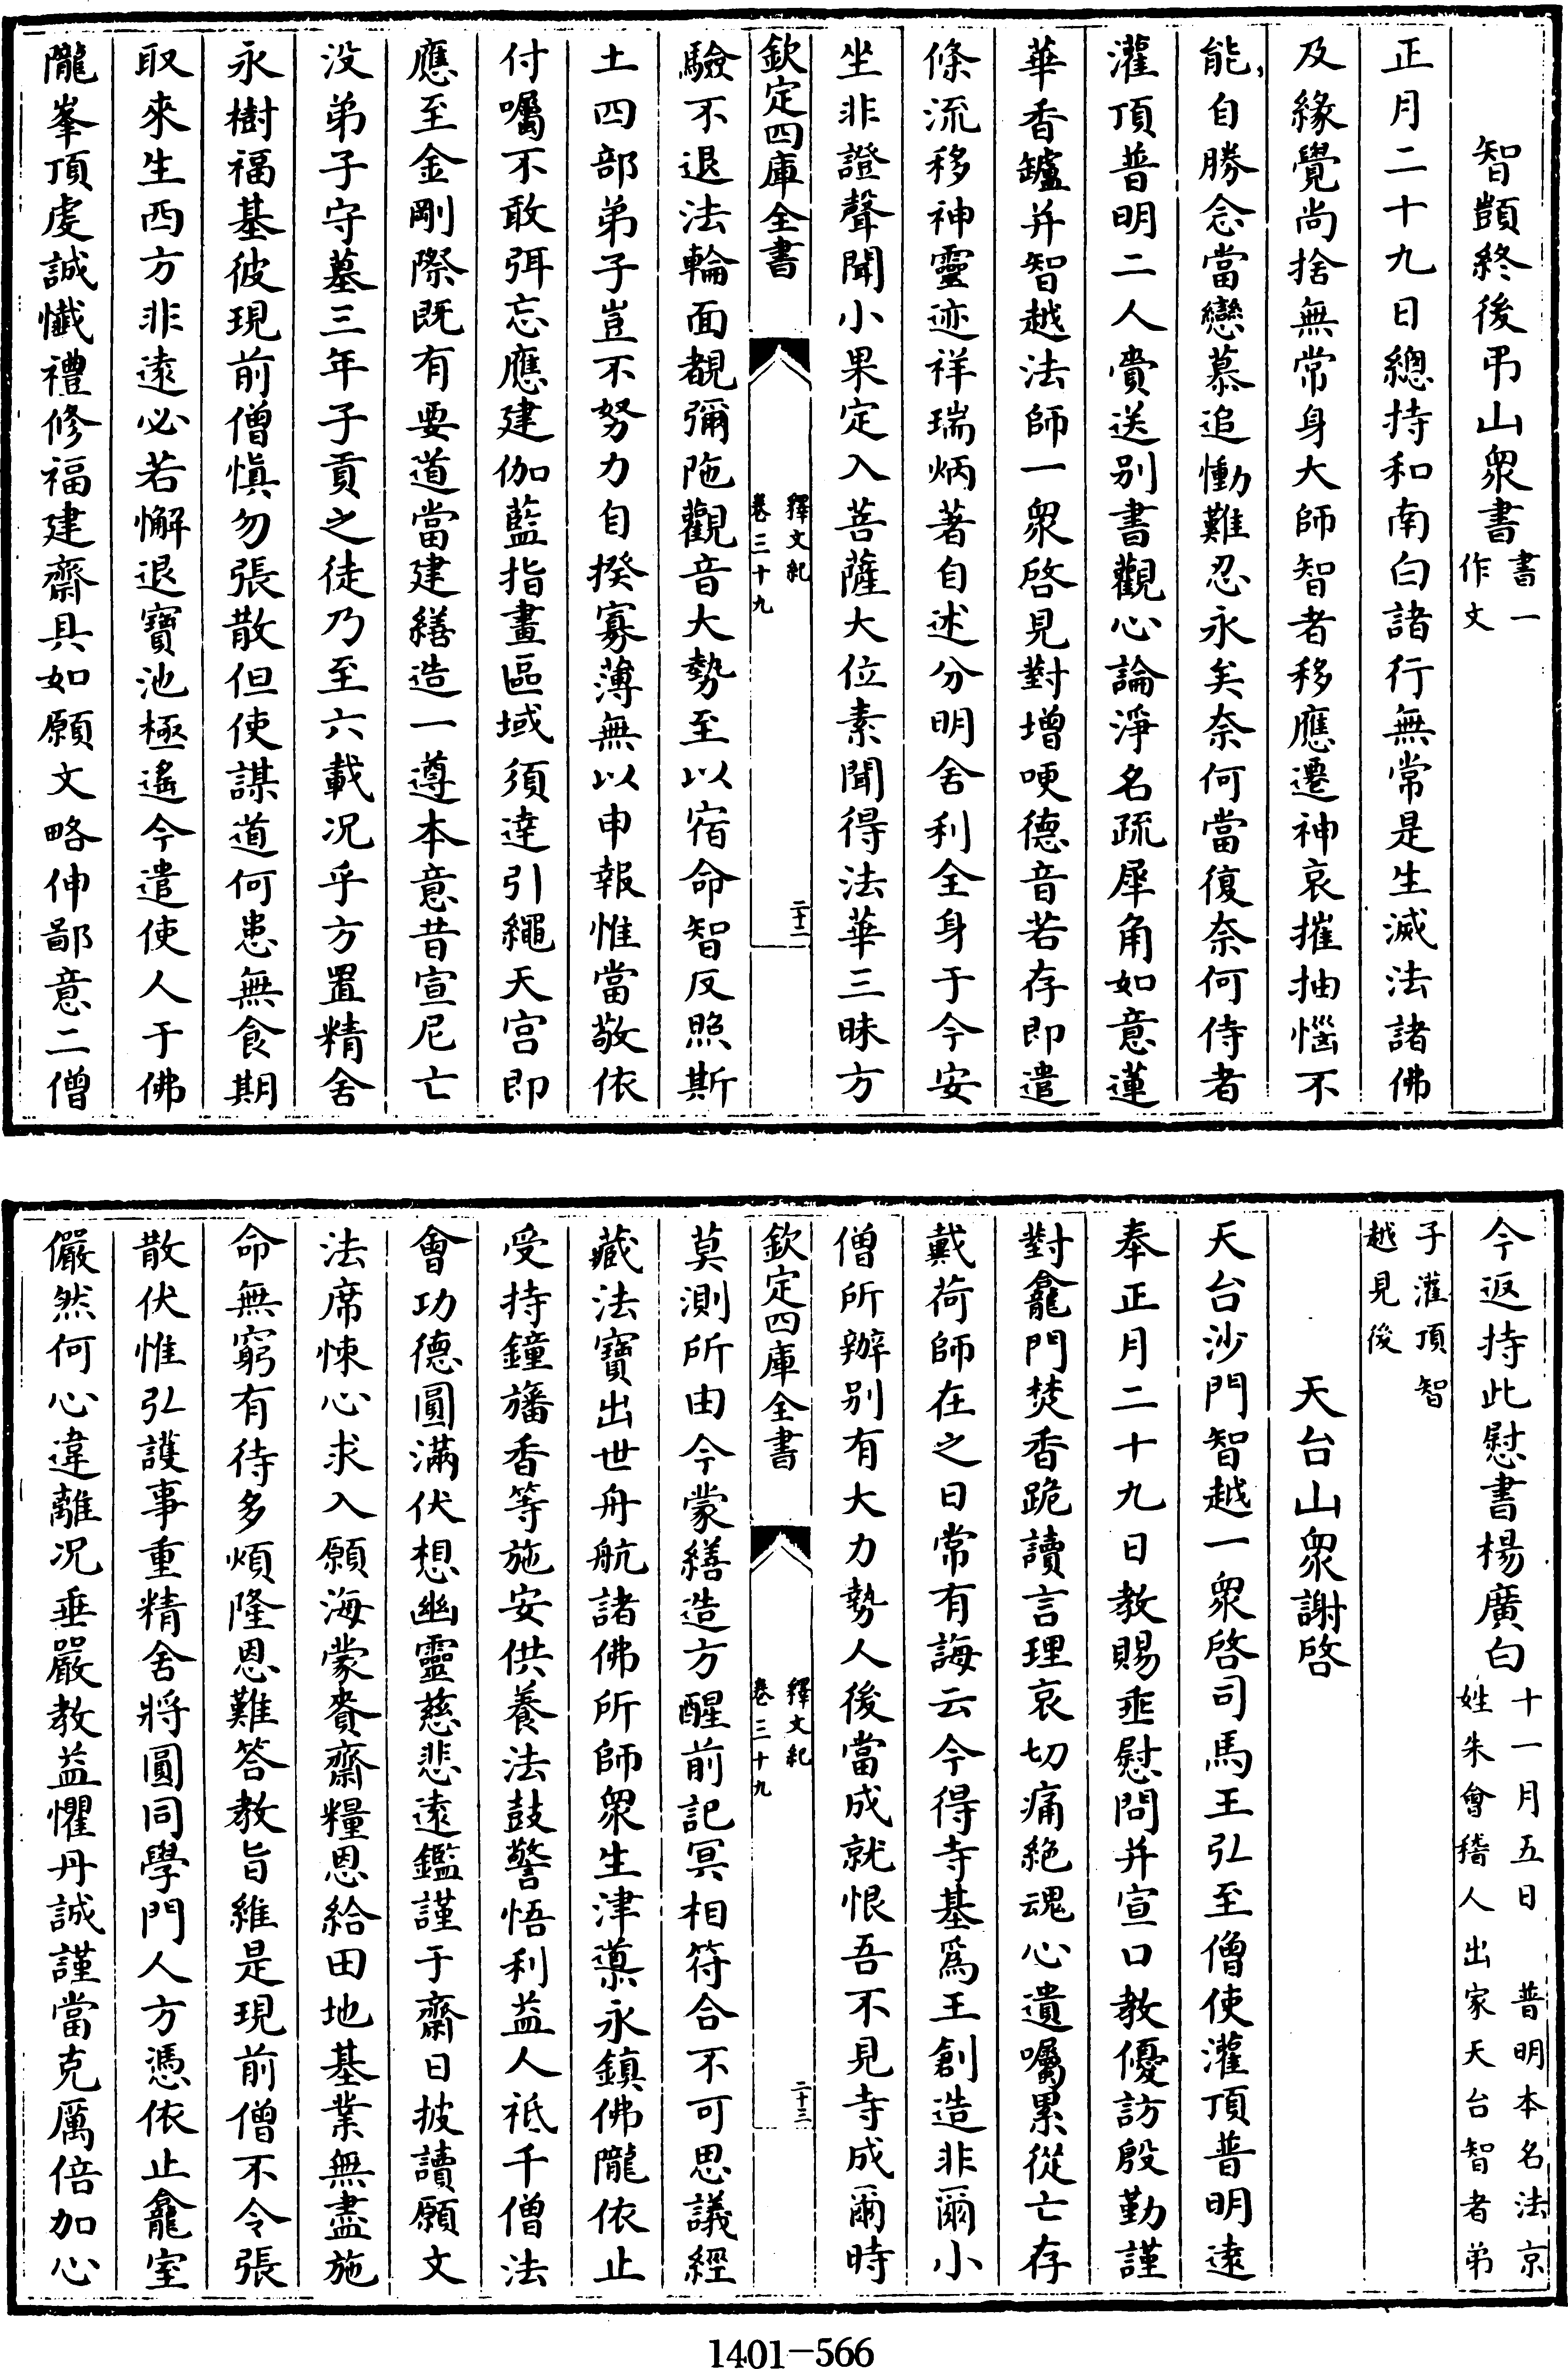 智顗終後弔山衆書書一作文
正月二十九日總持和南白諸行無常是生滅法諸佛
及緣覺尚捨無常身大師智者移應遷神哀摧抽惱不
能自勝念當戀慕追慟難忍永矣奈何當復奈何侍者
灌頂普明二人賫送別書觀心論淨名疏犀角如意蓮
華香鑪并智越法師一衆啓見對增哽德音若存即遣
條流移神靈迹祥瑞炳著自述分明舍利全身于今安
坐非證聲聞小果定入菩薩大位素聞得法華三昧方
欽定四庫全書
釋文紀
卷三十九
二十二
驗不退法輪面覩彌陁觀音大勢至以宿命智反照斯
土四部弟子豈不努力自揆寡薄無以申報惟當敬依
付囑不敢弭忘應建伽藍指畫區域須達引繩天宫即
應至金剛際既有要道當建繕造一遵本意昔宣尼亡
没弟子守墓三年子貢之徒乃至六載况乎方置精舍
永樹福基彼現前僧慎勿張散但使謀道何患無食期
取來生西方非遠必若懈退寶池極遙今遣使人于佛
隴峯頂虔誠懺禮修福建齋具如願文略伸鄙意二僧
今返持此慰書楊廣白十一月五日　普明本名法京姓朱會稽人出家天台智者弟
子灌頂智越見後
天台山衆謝啓
天台沙門智越一衆啓司馬王弘至僧使灌頂普明遠
奉正月二十九日教賜垂慰問并宣口教優訪殷勤謹
對龕門焚香跪讀言理哀切痛絶魂心遺囑累從亡存
戴荷師在之日常有誨云今得寺基爲王創造非爾小
僧所辦别有大力勢人後當成就恨吾不見寺成爾時
欽定四庫全書
釋文紀
卷三十九
二十三
莫測所由今蒙繕造方醒前記冥相符合不可思議經
藏法寶出世舟航諸佛所師衆生津導永鎮佛隴依止
受持鐘旛香等施安供養法鼓警悟利益人祗千僧法
會功德圓滿伏想幽靈慈悲遠鑑謹于齋日披讀願文
法席悚心求入願海蒙賚齋糧恩給田地基業無盡施
命無窮有待多煩隆恩難答教旨維是現前僧不令張
散伏惟弘護事重精舍將圓同學門人方憑依止龕室
儼然何心違離况垂嚴教益懼丹誠謹當克厲倍加心
1401-566